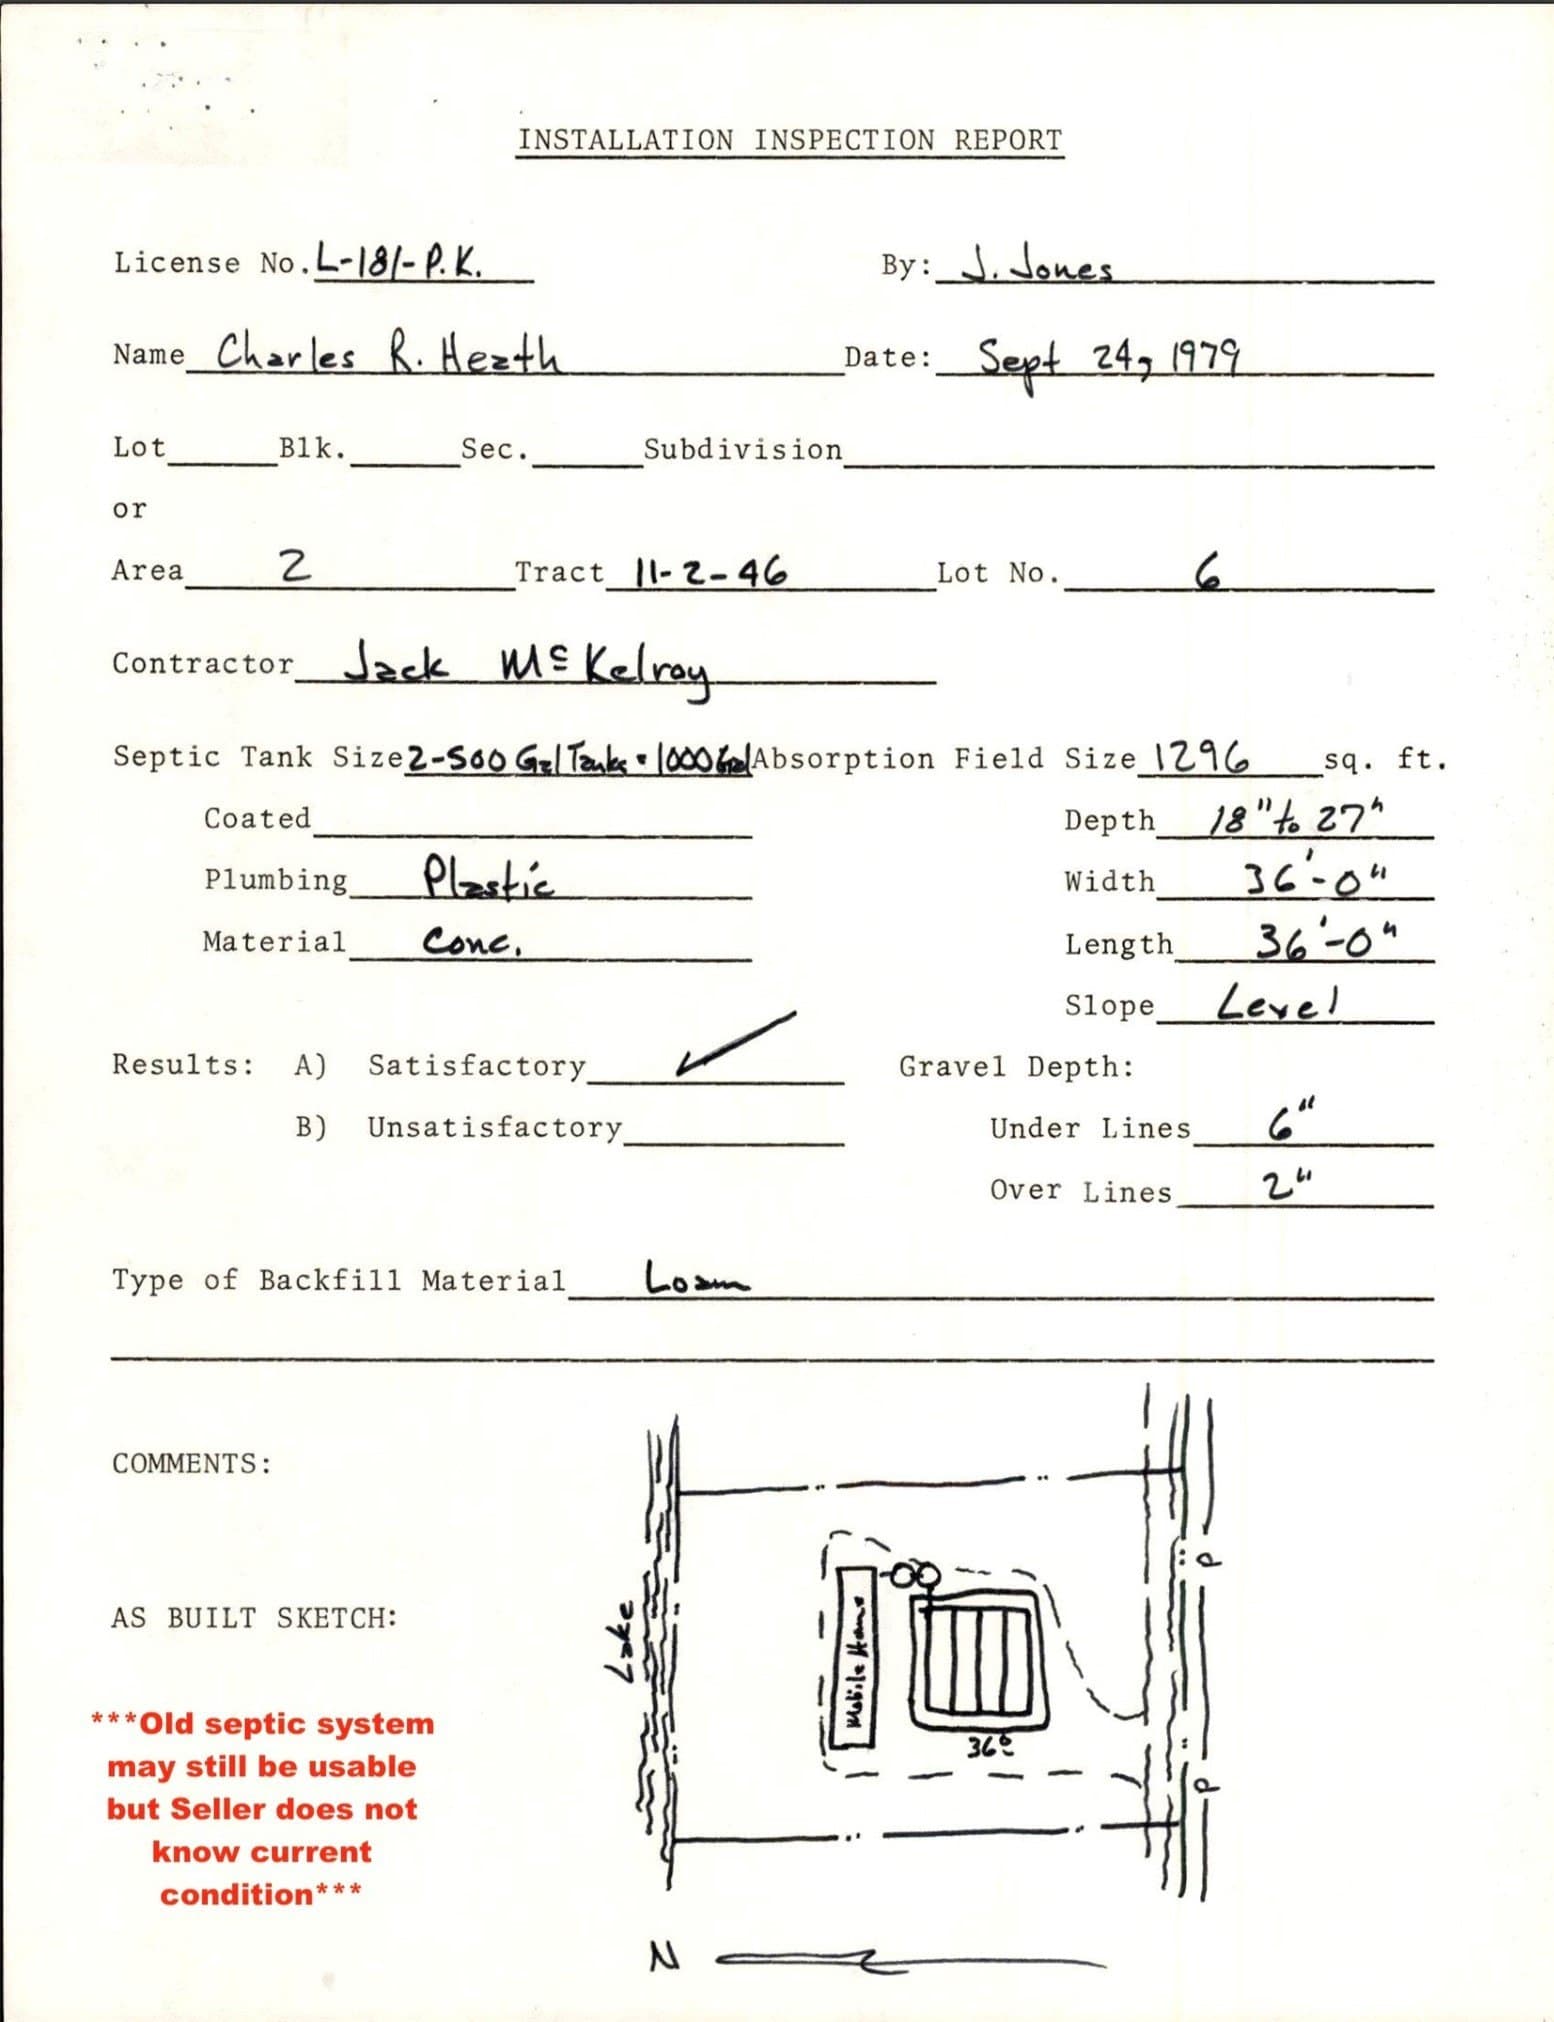 INSTALLATION INSPECTION REPORT
License No. L-181-P.K. By: J. Jones
Name Charles R. Heath Date: Sept 24, 1979
Lot Blk. Sec. Subdivision
or
Area 2 Tract 11-2-46 Lot No. 6
Contractor Jack McKelroy
Septic Tank Size 2-500 Gal Tanks = 1000 Gal Absorption Field Size 1296 sq. ft.
Coated Depth 18" to 27"
Plumbing Plastic Width 36'-0"
Material Conc. Length 36'-0"
Slope Level
Results: A) Satisfactory ✓ Gravel Depth:
B) Unsatisfactory Under Lines 6"
Over Lines 2"
Type of Backfill Material Loam
COMMENTS:
AS BUILT SKETCH:
Lake
Mobile Home
36°
P
P
***Old septic system
may still be usable
but Seller does not
know current
condition***
N